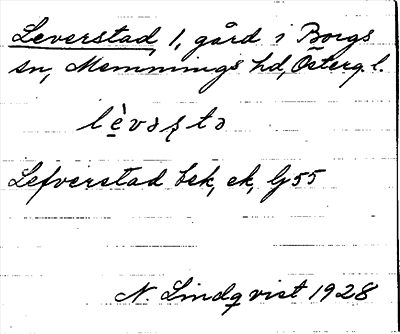 Leverstad, 1, gård i Borgs
sn, Memmings hd, Österg. l.
lèvəʂtə
Lefverstad bek, ek, G55
N. Lindqvist 1928